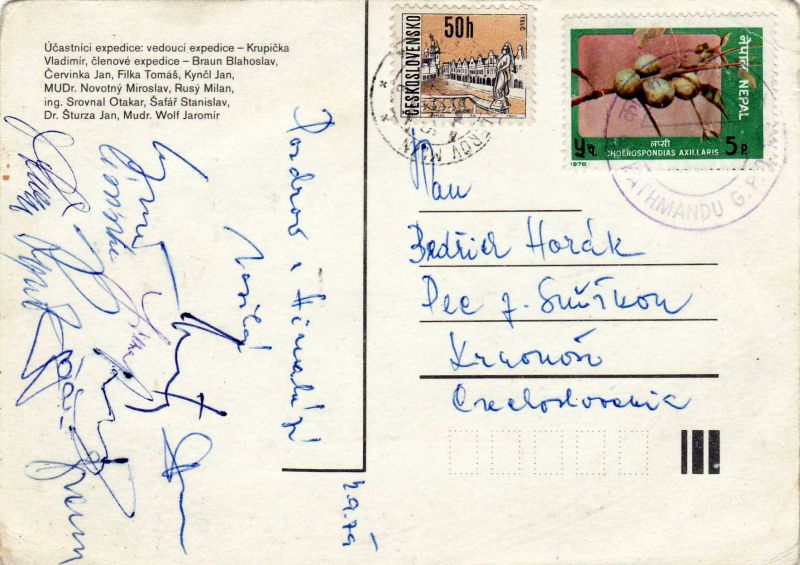 Účastníci expedice: vedoucí expedice – Krupička
Vladimír, členové expedice – Braun Blahoslav,
Červinka Jan, Filka Tomáš, Kynčl Jan,
MUDr. Novotný Miroslav, Rusý Milan,
ing. Srovnal Otakar, Šafář Stanislav,
Dr. Šturza Jan, Mudr. Wolf Jaromír
ČESKOSLOVENSKO
50h
TELČ
नेपाल NEPAL
लप्सी
CHOEROSPONDIAS AXILLARIS
५ प.
5 P.
1978
KATHMANDU G.P.O.
Pozdrav z Himaláji
zasílají
Pan
Bedřich Horák
Pec p. Sněžkou
Krkonoše
Czechoslovenia